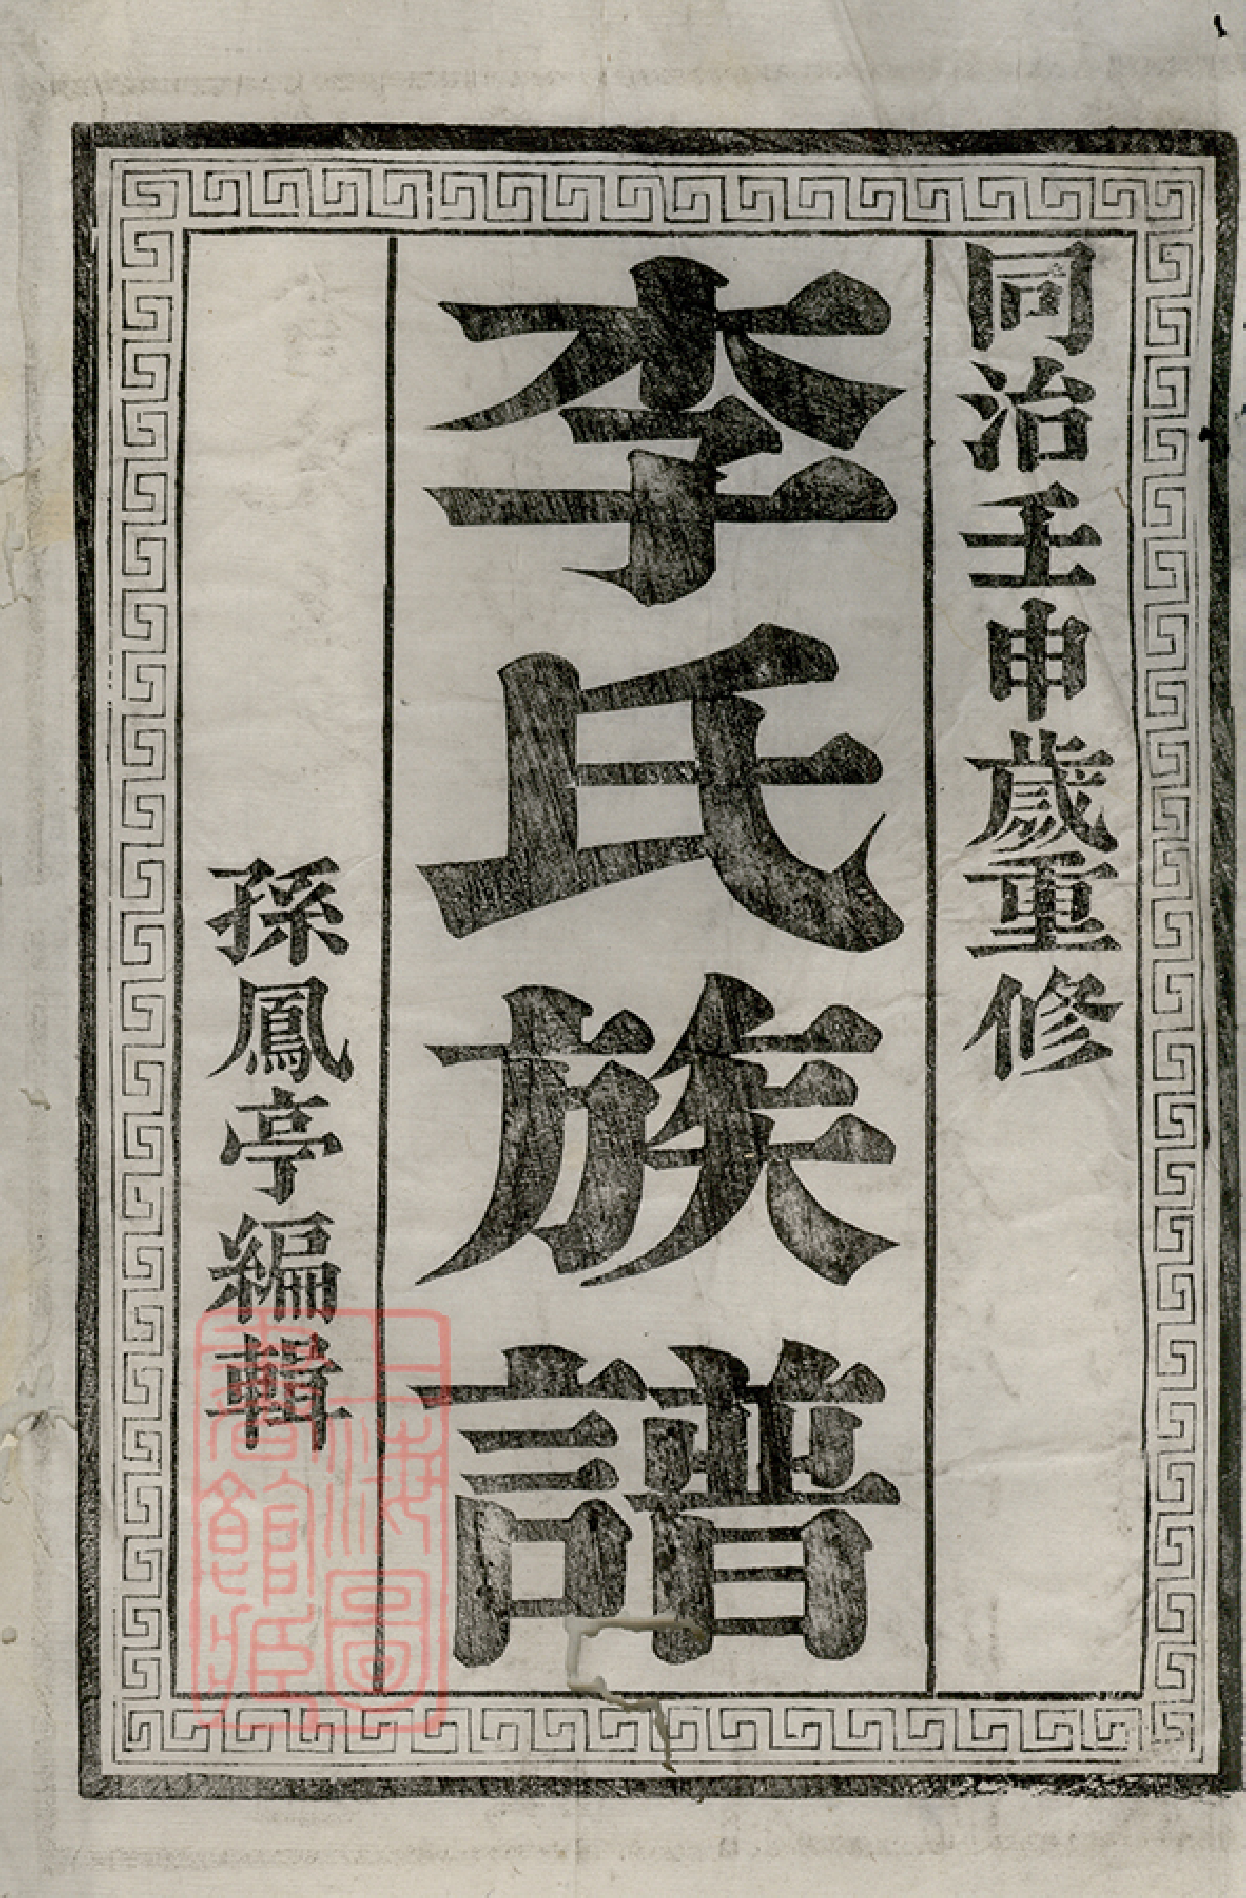 同治壬申歲重修
李氏族譜
孫鳳亭編輯
上海圖
書館藏